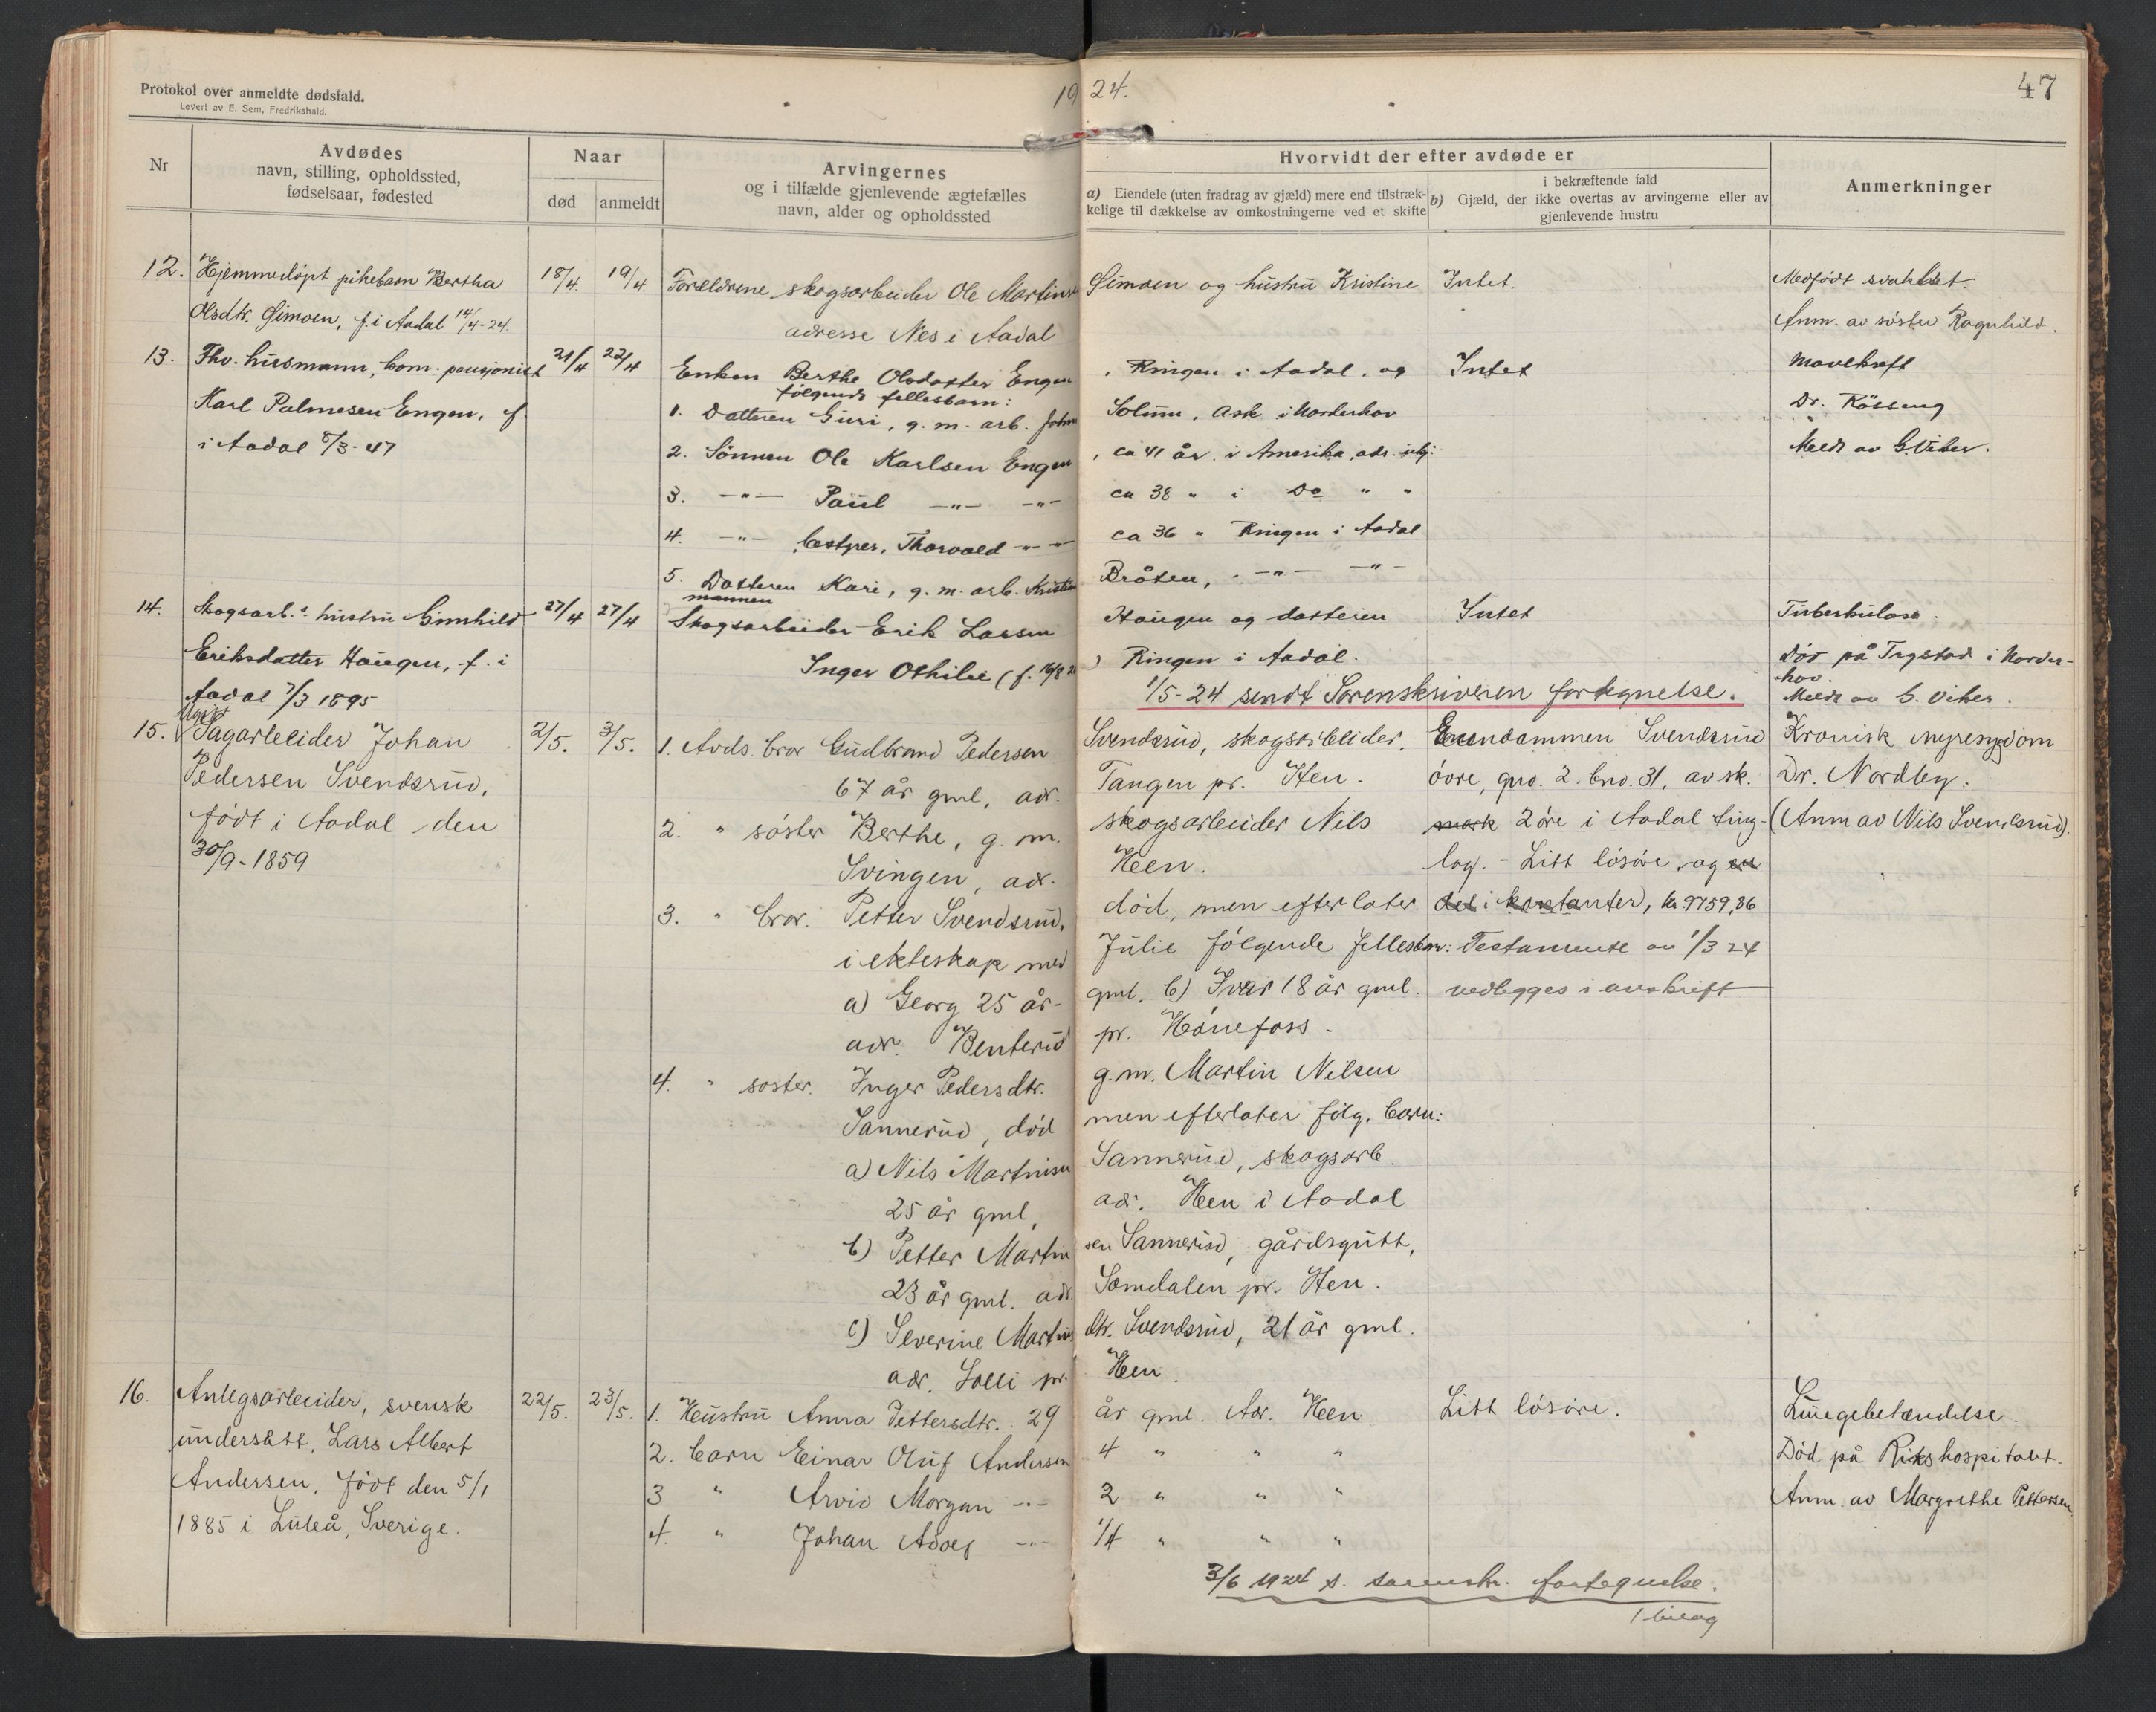 Protokol over anmeldte dødsfald.
Levert av E. Sem, Fredrikshald.
1924.
47
Nr
Avdødes
navn, stilling, opholdssted,
fødselsaar, fødested
Naar
død
anmeldt
Arvingernes
og i tilfælde gjenlevende ægtefælles
navn, alder og opholdssted
Hvorvidt der efter avdøde er
a) Eiendele (uten fradrag av gjæld) mere end tilstræk-
kelige til dækkelse av omkostningerne ved et skifte
i bekræftende fald
b) Gjæld, der ikke overtas av arvingerne eller av
gjenlevende hustru
Anmerkninger
12. Hjemmedøpt pikebarn Bertha 18/4 19/4 Forældrene skogsarbeider Ole Martinsen Simoen og hustru Kristine Intet. Medfødt svakhet.
Olsdtr. Simoen, f. i Aadal 14/4-24. adresse Nes i Aadal Anm. av søster Ragnhild.
13. Fhv. husmann, kom. pensjonist 21/4 22/4 Enken Berthe Olsdatter Engen, Ringen i Aadal, og Intet Mavekreft
følgende fellesbarn:
Karl Palmesen Engen, f. 1. Datteren Guri, g. m. arb. Johan Solum, Ask i Norderhov Dr. Kösseng
i Aadal 8/3-47 2. Sønnen Ole Karlsen Engen, ca 41 år i Amerika, adr. ubj: Meldt av G. Viker.
3. -"- Paul -"- -"- ca 38 " i Do " "
4. -"- Thorvald -"- ca 36 " Ringen i Aadal
5. Datteren Kari, g. m. arb. Kristian Bråten, -"- -"-
14. Skogsarb.s hustru Gunhild 27/4 27/4 mannen Skogsarbeider Erik Larsen Haugen og datteren Intet Tuberkulose.
Eriksdatter Haugen, f. i Inger Othilie (f. 16/8 ) Ringen i Aadal. Død på Tegstad i Norder-
hov.
Aadal 7/3 1895 1/5-24 sendt Sorenskriveren fortegnelse. Meldt av G. Viker.
15. Ugift Sagarbeider Johan 2/5. 3/5. 1. Avds. bror Gudbrand Pedersen Svendsrud, skogsarbeider, Eiendommen Svendsrud Kronisk nyresygdom
Pedersen Svendsrud, 67 år gml, adr. Tangen pr. Hen. övre, gno. 2. bno. 31, av sk. Dr. Nordby.
født i Aadal den 2. " søster Berthe, g. m. skogsarbeider Nils mark 2 øre i Aadal ting- (Anm av Nils Svendsrud).
30/9-1859 Svingen, adr. Heen. lag. - Litt løsøre og en
3. " bror. Petter Svendsrud, død, men efterlater del i kontanter, kr 9759,86
i ekteskap med Julie følgende fellesbarn: Testamente av 1/3 24
a) Georg 25 år gml, b) Ivar 18 år gml. vedlegges i avskrift
adr. Benterud pr. Hønefoss.
4. " søster. Inger Pedersdtr. g. m. Martin Nilsen
Sannerud, død men efterlater følg. barn:
a) Nils Martinsen Sannerud, skogsarb.
25 år gml, adr. Heen i Aadal
b) Petter Martinsen Sannerud, gårdsgutt,
23 år gml. adr Somdalen pr. Hen.
c) Severine Martinsdtr. Svendsrud, 21 år gml.
adr. Solli pr. Heen.
16. Anlegsarbeider, svensk 22/5. 23/5. 1. Hustru Anna Pettersdtr. 29 år gml. Adr. Heen Litt løsøre. Lungebetændelse.
undersått, Lars Albert 2. barn Einar Oluf Andersen 4 " " " Død på Rikshospitalet.
Andersen, født den 5/1 3 " Arvid Morgan -"- 2 " " " Anm. av Margrethe Pettersen.
1885 i Luleå, Sverige. 4. " Johan Adolf -"- 1/4 " " "
3/6 1924 s. sorenskr. fortegnelse.
1 bilag